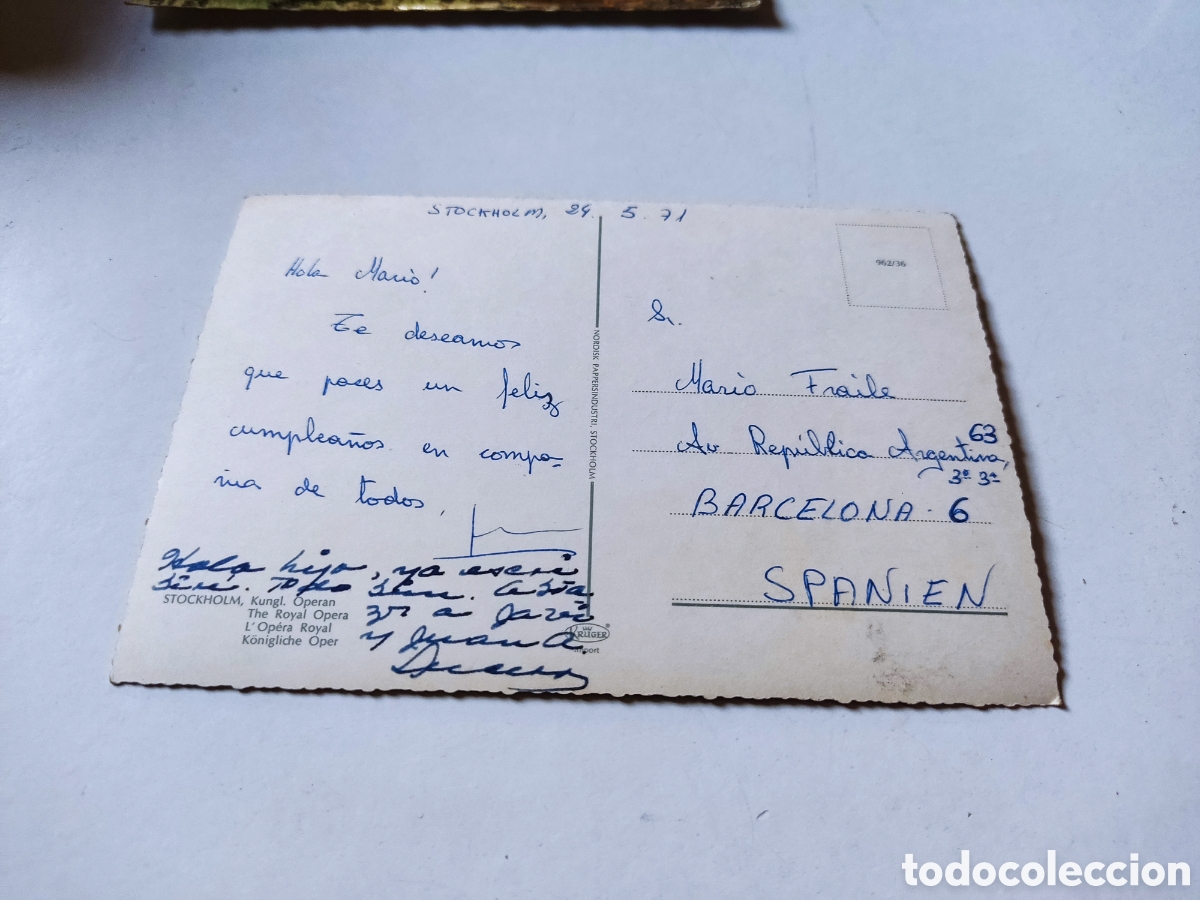 STOCKHOLM, 24. 5. 71
Hola Mario!
Te deseamos
que pases un feliz
cumpleaños en compa-
ñia de todos.
Hola hijo, ya escri
biré. Todo bien.
y Juan A.
STOCKHOLM, Kungl. Operan
The Royal Opera
L'Opéra Royal
Königliche Oper
NORDISK PAPPERSINDUSTRI, STOCKHOLM
KRÜGER
import
962/36
Sr.
Mario Fraile
Av República Argentina, 63
3º 3ª
BARCELONA - 6
SPANIEN
todocoleccion